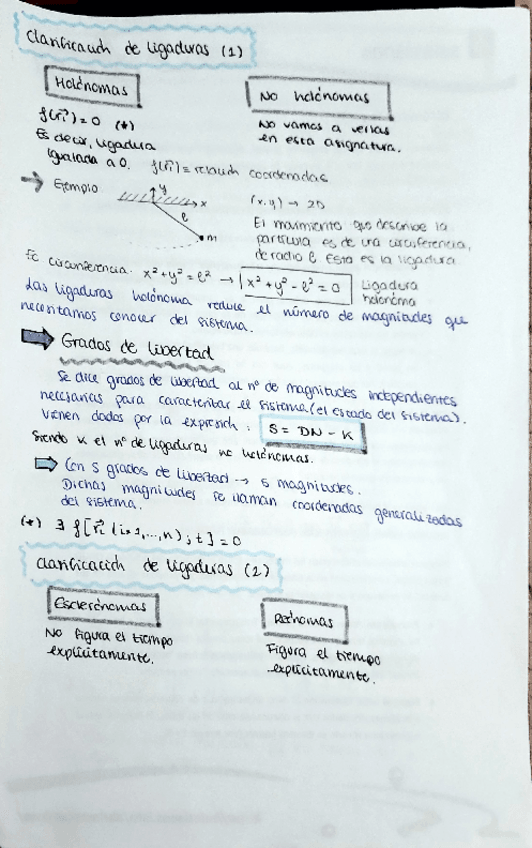 Clasificación de ligaduras (1)
Holónomas
f(r⃗)=0 (*)
Es decir, ligadura
igualada a 0. f(r⃗)= relación coordenadas
No holónomas
No vamos a verlas
en esta asignatura.
→ Ejemplo
y
x
l
m
(x,y) → 2D
El movimiento que describe la
partícula es de una circunferencia,
de radio l. Esta es la ligadura
Ec circunferencia: x² + y² = l² → x² + y² - l² = 0 Ligadura
holónoma
Las ligaduras holónoma reduce el número de magnitudes que
necesitamos conocer del sistema.
Grados de libertad
Se dice grados de libertad al nº de magnitudes independientes
necesarias para caracterizar el sistema (el estado del sistema).
Vienen dados por la expresión: S = DN - K
Siendo K el nº de ligaduras no holónomas.
Con S grados de libertad → S magnitudes.
Dichas magnitudes se llaman coordenadas generalizadas
del sistema.
(*) ∃ f[r⃗i (i=1,...,n); t] = 0
Clasificación de ligaduras (2)
Esclerónomas
No figura el tiempo
explícitamente.
Reónomas
Figura el tiempo
explícitamente.